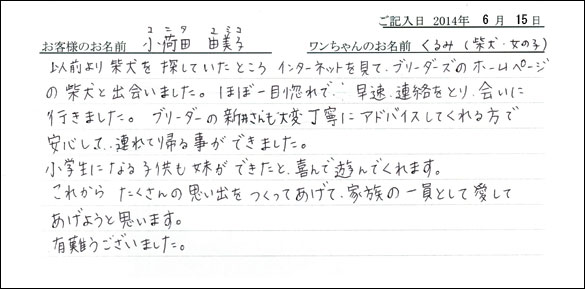 ご記入日 2014年 6月 15日
コニタ ユミコ
お客様のお名前 小荷田 由美子 ワンちゃんのお名前 くるみ(柴犬・女の子)
以前より柴犬を探していたところ インターネットを見て、ブリーダーズのホームページ
の柴犬と出会いました。ほぼ一目惚れで、早速、連絡をとり、会いに
行きました。ブリーダーの新井さんも大変丁寧にアドバイスしてくれる方で
安心して、連れて帰る事ができました。
小学生になる子供も妹ができたと、喜んで遊んでくれます。
これから たくさんの思い出をつくってあげて、家族の一員として愛して
あげようと思います。
有難うございました。